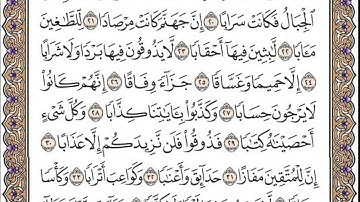 ٱلۡجِبَالُ فَكَانَتۡ سَرَابًا ٢٠ إِنَّ جَهَنَّمَ كَانَتۡ مِرۡصَادٗا ٢١ لِّلطَّٰغِينَ
مَـَٔابٗا ٢٢ لَّٰبِثِينَ فِيهَآ أَحۡقَابٗا ٢٣ لَّا يَذُوقُونَ فِيهَا بَرۡدٗا وَلَا شَرَابًا
٢٤ إِلَّا حَمِيمٗا وَغَسَّاقٗا ٢٥ جَزَآءٗ وِفَاقًا ٢٦ إِنَّهُمۡ كَانُواْ
لَا يَرۡجُونَ حِسَابٗا ٢٧ وَكَذَّبُواْ بِـَٔايَٰتِنَا كِذَّابٗا ٢٨ وَكُلَّ شَيۡءٍ
أَحۡصَيۡنَٰهُ كِتَٰبٗا ٢٩ فَذُوقُواْ فَلَن نَّزِيدَكُمۡ إِلَّا عَذَابًا ٣٠
إِنَّ لِلۡمُتَّقِينَ مَفَازًا ٣١ حَدَآئِقَ وَأَعۡنَٰبٗا ٣٢ وَكَوَاعِبَ أَتۡرَابٗا ٣٣ وَكَأۡسٗا